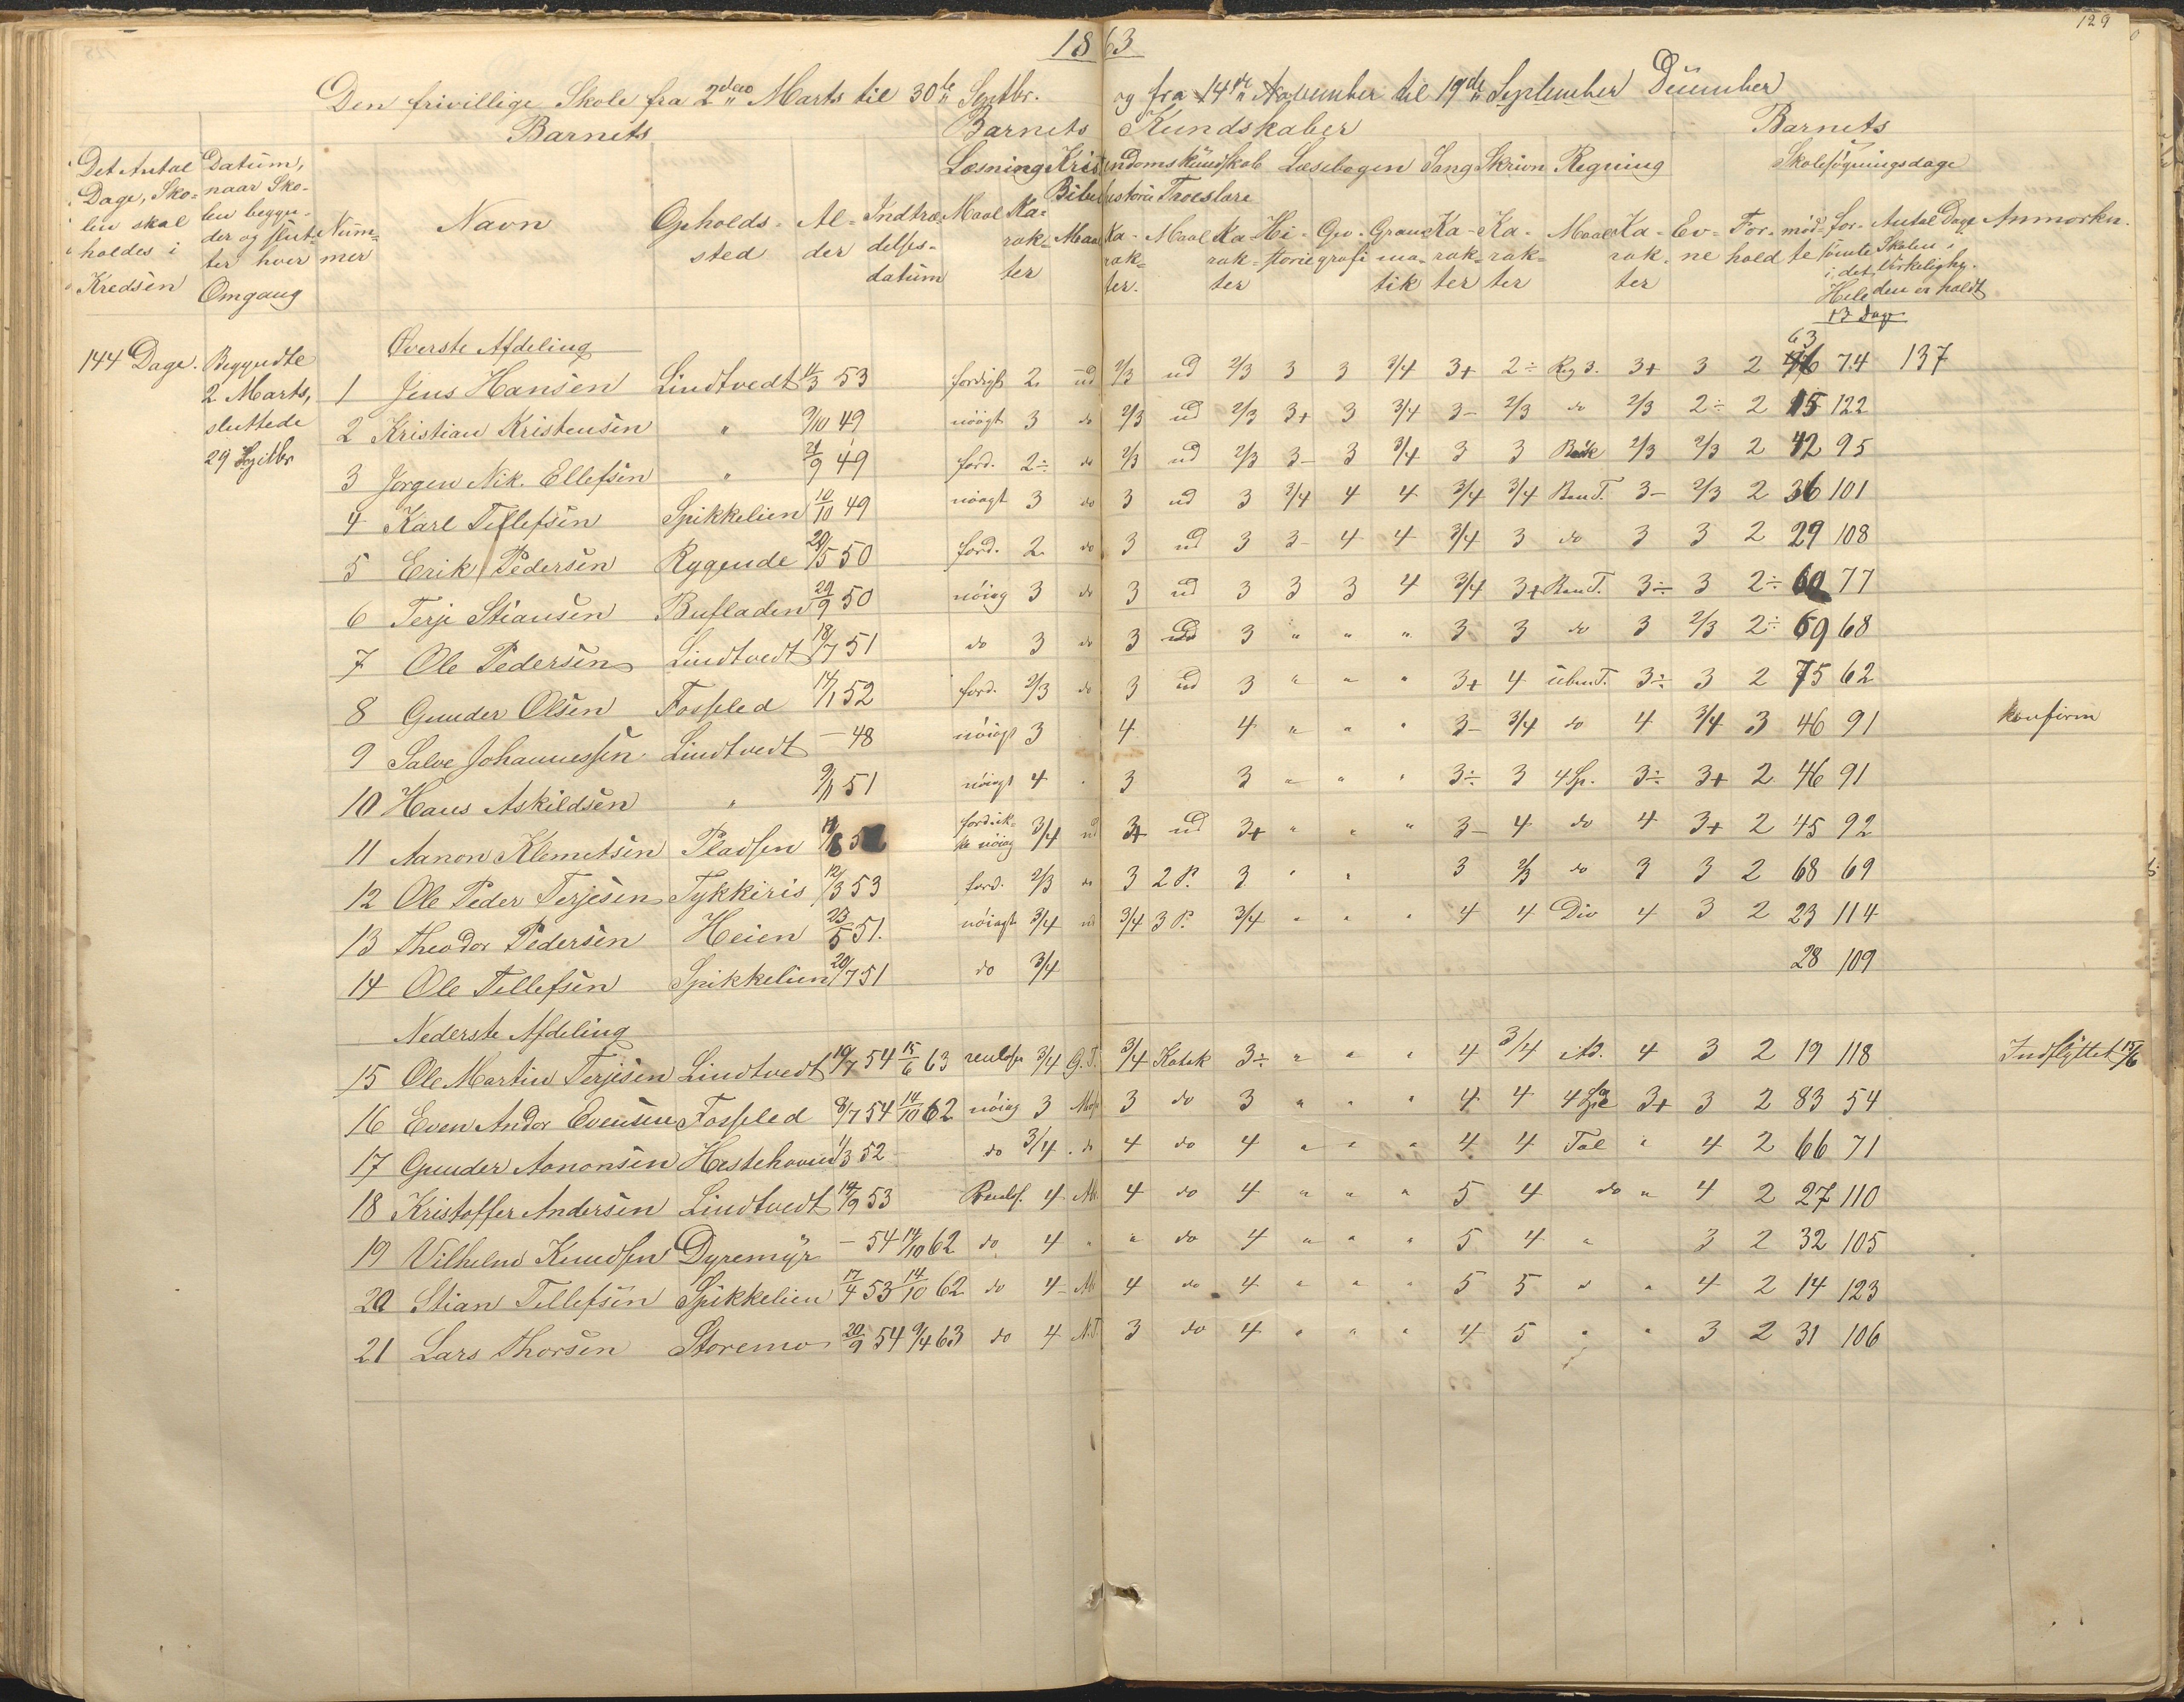 129
1863
Den frivillige Skole fra 2den Marts til 30te Septbr. og fra 14de November til 19de September December
Barnets Barnets Kundskaber Barnets
Læsning Kristendomskundskab Læsebogen Sang Skrivn Regning Skolesøgningsdage
Bibelhistorie Troeslære
Det Antal Dage, Skolen skal holdes i Kredsen
Datum, naar Skolen begynder og slutter hver Omgang
Nummer
Navn
Opholdssted
Alder
Indtrædelsesdatum
Maal Karakter Maal Karakter. Maal Karakter Historie Geografi Gramatik Karakter Karakter Maal Karakter Evne Forhold mødte forsømte i det Hele
Antal Dage Skolen i Virkeligheden er holdt
Anmærkn.
13 Dage
144 Dage. Begyndte 2 Marts, sluttede 29 Septbr
Øverste Afdeling
1 Jens Hansen Lindtvedt 11/3 53 færdigt 2 ud 2/3 ud 2/3 3 3 3/4 3+ 2÷ Reg 3. 3+ 3 2 63 74 137
2 Kristian Kristensen " 9/10 49 nøiagt 3 do 2/3 ud 2/3 3+ 3 3/4 3- 2/3 do 2/3 2÷ 2 15 122
3 Jørgen Nik. Ellefsen " 21/9 49 færd. 2÷ do 2/3 ud 2/3 3- 3 3/4 3 3 2/3 2/3 2 42 95
4 Karl Tellefsen Spikkelien 10/10 49 nøagt 3 do 3 ud 3 3/4 4 4 3/4 3/4 3- 2/3 2 36 101
5 Erik Pedersen Rygende 20/5 50 færd. 2 do 3 ud 3 3- 4 4 3/4 3 do 3 3 2 29 108
6 Terje Stiansen Bufladen 29/9 50 nøiag 3 do 3 ud 3 3 3 4 3/4 3+ 3÷ 3 2÷ 60 77
7 Ole Pedersen Lindtvedt 18/7 51 do 3 do 3 ud 3 " " " 3 3 do 3 2/3 2÷ 69 68
8 Gunder Olsen Fosseled 14/1 52 færd. 2/3 do 3 ud 3 " " " 3+ 4 3÷ 3 2 75 62
9 Salve Johannessen Lindtvedt - 48 nøiagt 3 4 4 " " " 3- 3/4 do 4 3/4 3 46 91 konfirm
10 Hans Askildsen " 9/1 51 nøiagt 4 " 3 3 " " " 3÷ 3 4 Sp. 3÷ 3+ 2 46 91
11 Aanon Klemetsen Pladsen 3/4 ud 3+ ud 3+ " " " 3- 4 do 4 3+ 2 45 92
12 Ole Peder Terjesen Tykkiris 12/3 53 færd. 2/3 do 3 2 P. 3 " " 3 2/3 do 3 3 2 68 69
13 Theodor Pedersen Heien 23/5 51. nøiagt 3/4 ud 3/4 3 P. 3/4 " " " 4 4 Div 4 3 2 23 114
14 Ole Tellefsen Spikkelien 20/7 51 do 3/4 28 109
Nederste Afdeling
15 Ole Martin Terjesen Lindtvedt 19/7 54 15/6 63 3/4 G.T. 3/4 Katek 3÷ " " " 4 3/4 Ad. 4 3 2 19 118 Indflyttet 15/6
16 Even Andr Evensen Fosseled 8/7 54 14/10 62 nøiag 3 3 do 3 " " " 4 4 3+ 3 2 83 54
17 Gunder Aanonsen Hestehoven 11/3 52 do 3/4 do 4 do 4 " " " 4 4 Tal " 4 2 66 71
18 Kristoffer Andersen Lindtvedt 14/9 53 4 4 do 4 " " " 5 4 do " 4 2 27 110
19 Vilhelm Knudsen Dyremyr - 54 14/10 62 do 4 " " do 4 " " " 5 4 " 3 2 32 105
20 Stian Tellefsen Spikkelien 17/4 53 14/10 62 do 4 4 do 4 " " " 5 5 " " 4 2 14 123
21 Lars Thorsen Storemo 20/9 54 9/4 63 do 4 N.T. 3 do 4 " " " 4 5 " " 3 2 31 106